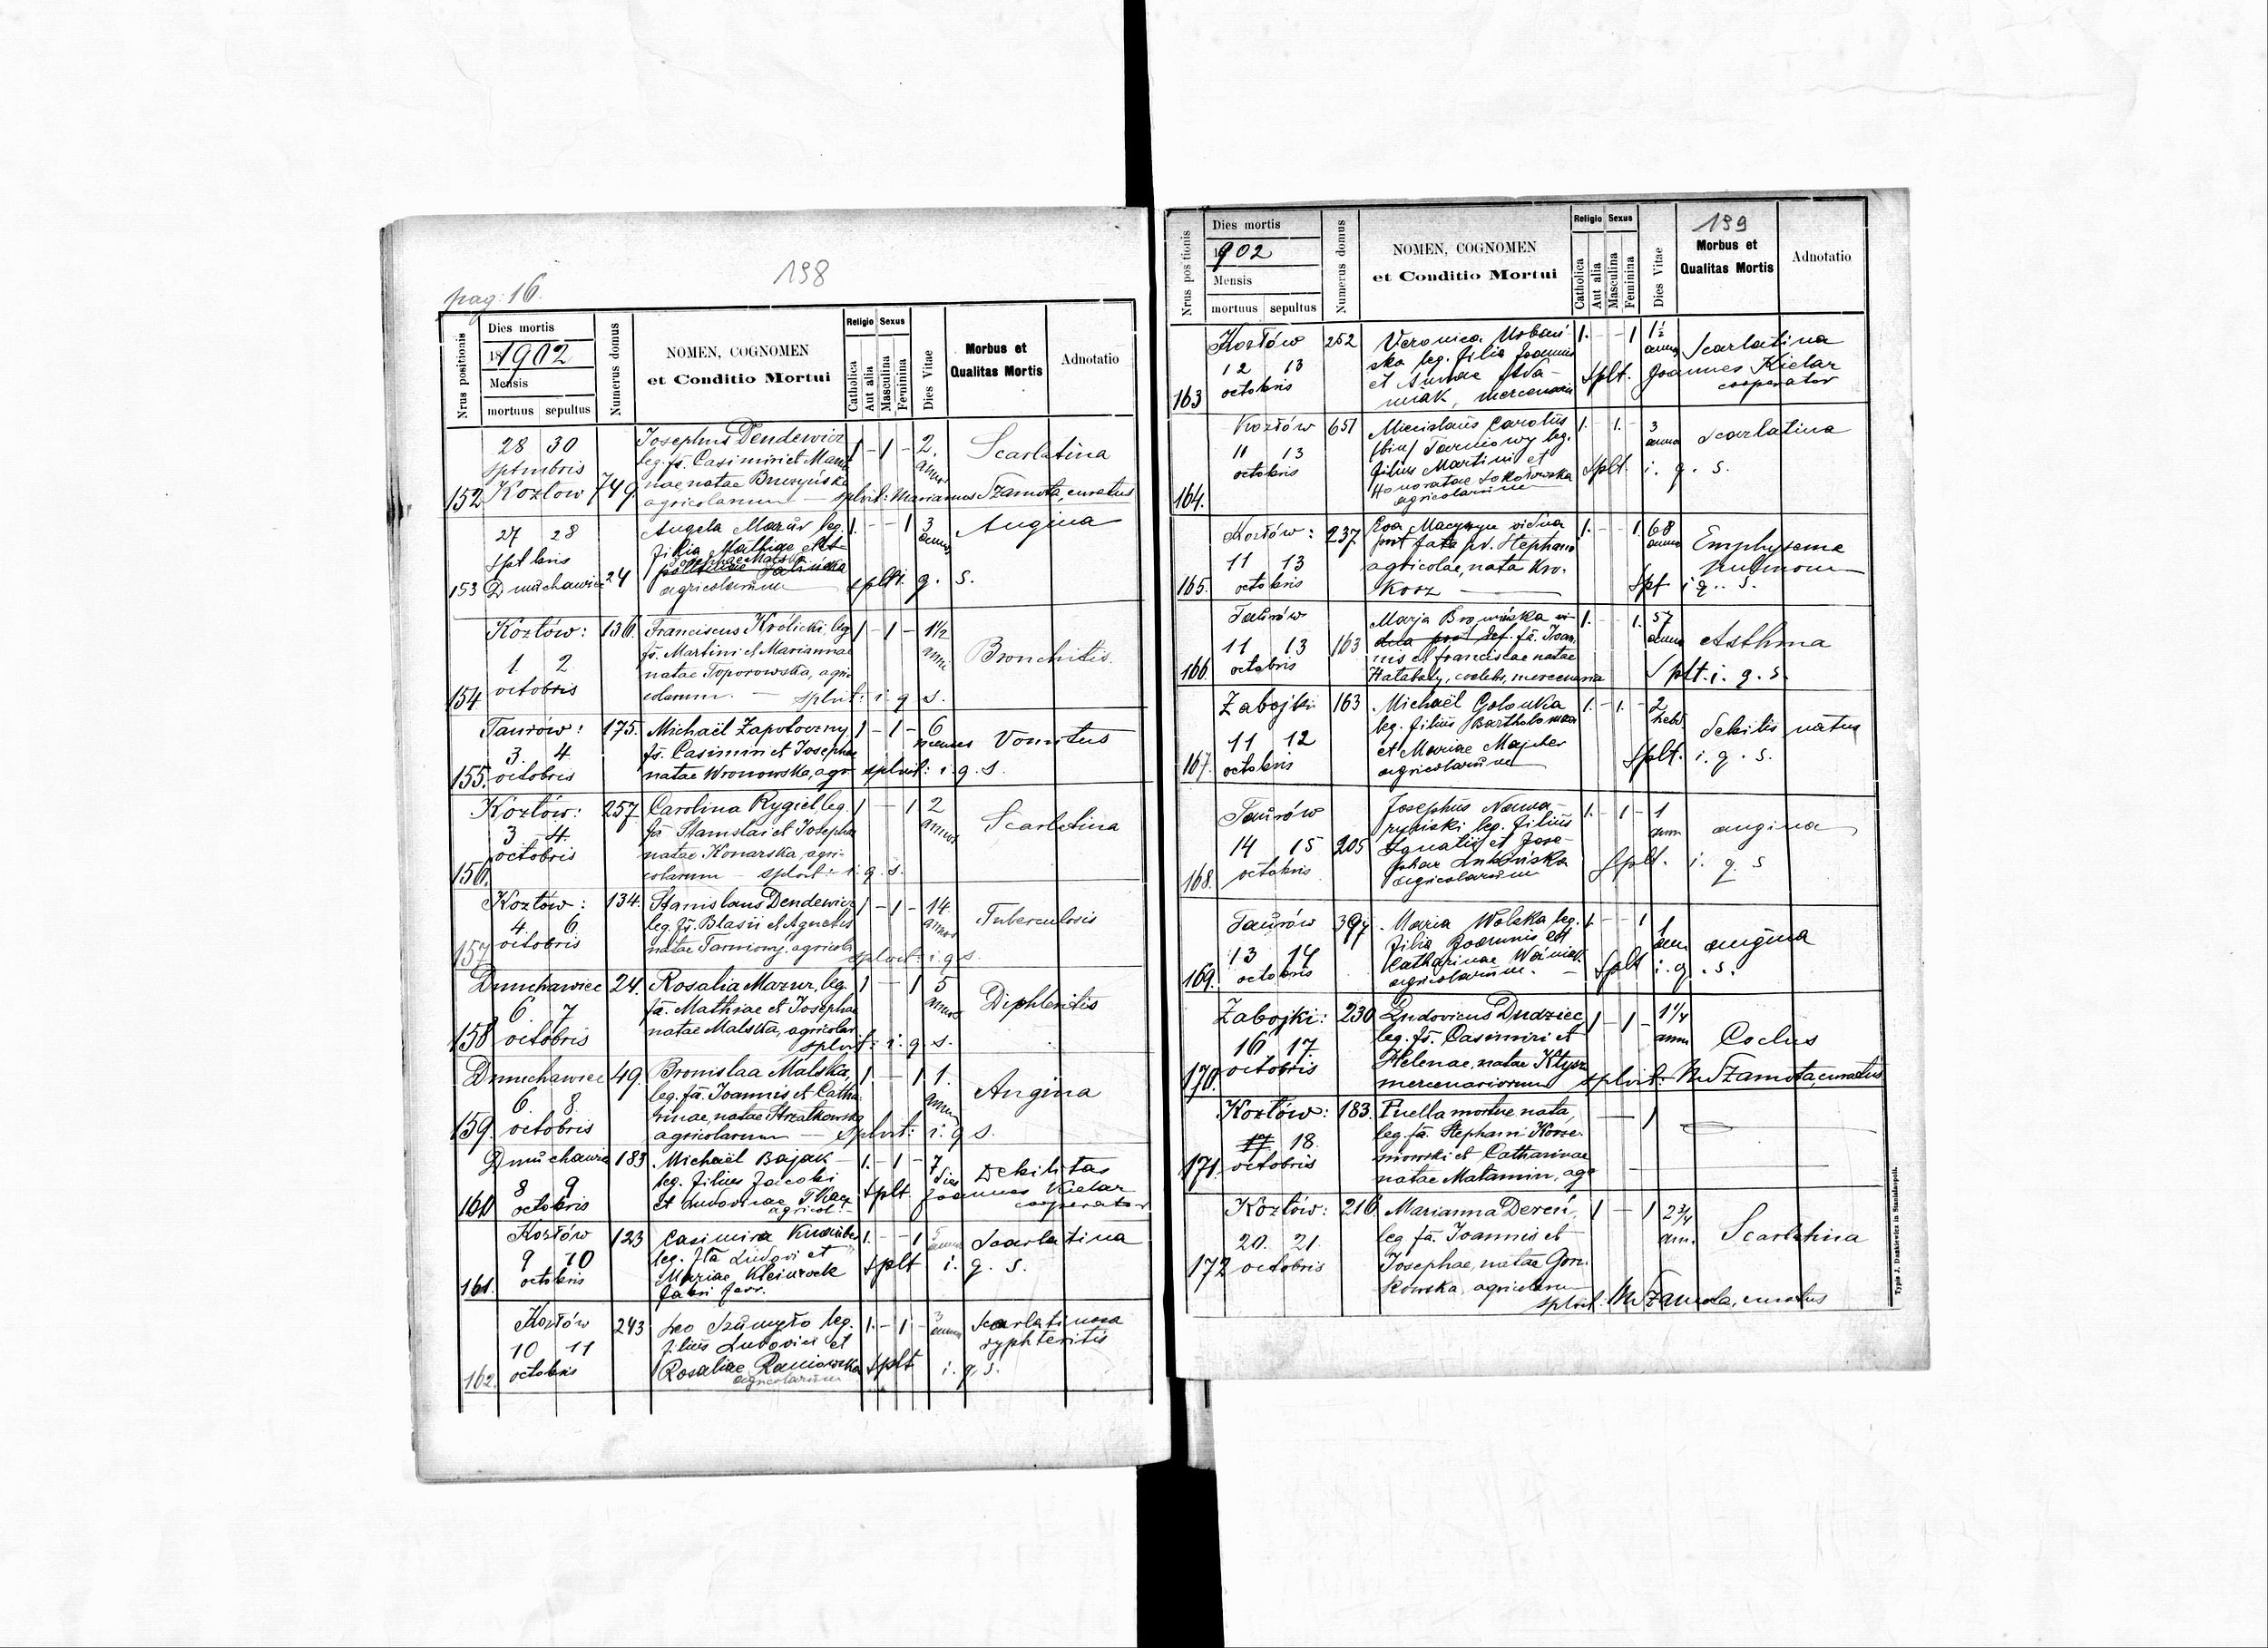 pag: 16.
198
Nrus positionis
Dies mortis
181902
Mensis
mortuus sepultus
Numerus domus
NOMEN, COGNOMEN
et Conditio Mortui
Religio Sexus
Catholica
Aut alia
Masculina
Feminina
Dies Vitae
Morbus et
Qualitas Mortis
Adnotatio
28 30
Sptmbris
152 Kozłow 749.
Josephus Dendewicz 1 - 1 - 2.
leg. fs. Casimiri et Marian annos Scarlatina
nae natae Bruzyńska
agricolarum — splvit: Marianus Szamota, curatus
27 28
Sptbris
153 Dmuchawiec 24
Angela Mazur leg. 1. - - 1 3 Angina
filia Mathiae et annos
Josephae Malska
agricolarum splt i. q. s.
Kozłów: 136.
1 2
154 octobris
Franciscus Królicki, leg. 1 - 1 - 1½
fs. Martini et Mariannae anni Bronchitis.
natae Toporowska, agri-
colarum. — splvit: i q s.
Taurów: 175.
3. 4
155. octobris
Michaël Zapotoczny 1 - 1 - 6
fs. Casimiri et Josephae menses Vomitus
natae Wronowska, agr splvit: i. q. s.
Kozłów: 257
3 4.
octobris
156.
Carolina Rygiel leg. 1 - 1 2
fa Stanislai et Josepha annos Scarlatina
natae Konarska, agri-
colarum - splvit: i. q. s.
Kozłów: 134.
4. 6.
157 octobris
Stanislaus Dendewicz 1 - 1 - 14
leg. fs. Blasii et Agnetis annos Tuberculosis
natae Tarniowy, agricola
splvit: i q s.
Dmuchawiec 24.
6. 7
158 octobris
Rosalia Mazur, leg. 1 - 1 5
fa. Mathiae et Josephae annos Diphteritis
natae Malska, agricolar
splvit: i. q. s.
Dmuchawiec 49.
6. 8.
159. octobris
Bronislaa Malska, 1 - 1 1.
leg. fa. Joannis et Catha annum Angina
rinae, natae Strzałkowska
agricolarum — splvit: i. q s.
Dmuchawie 183
8 9
160 octobris
Michaël Bajak 1. - 1 - 7 Debilitas
leg. filius Jacobi dies
et Ludovicae Tkacz splt. Joannes Kielar
agricol. cooperator
Kozłów 123
9 10
161. octobris
Casimira 1. - - 1 Scarlatina
leg. fta Ludovi et
Mariae Kleinrock splt i. q. s.
fabri ferr.
Kozłów 243
10 11
162. octobris
Leo Szumyło leg. 1. - 1 - 3 Scarlatinosa
filius Ludovici et annos dyphteritis
Rosaliae Raniowska splt i. q. s.
agricolarum
199
Nrus positionis
Dies mortis
1902
Mensis
mortuus sepultus
Numerus domus
NOMEN, COGNOMEN
et Conditio Mortui
Religio Sexus
Catholica
Aut alia
Masculina
Feminina
Dies Vitae
Morbus et
Qualitas Mortis
Adnotatio
Kozłów 252
12 13
163 octobris
Veronica Urbań- 1. - - 1 1½
ska leg. filia Joannis anno Scarlatina
et Annae Ada- splt. Joannes Kielar
miak, mercenarii cooperator
Kozłów 651
11 13
octobris
164.
Miecislaus Carolus 1. - 1. - 3
(bin) Tarniowy leg. annos Scarlatina
filius Martini et splt. i. q. s.
Honoratae Sokołowska
agricolarum
Kozłów: 237
11 13
165. octobris
Eva vidua 1. - - 1. 68
post fata pd. Stephani annos Emphysema
agricolae, nata Kro- pulmonum
korz — spt i q. s.
Taurów
11 13 163
166. octobris
Marja Browińska vi- 1. - - 1. 57
dua post def. fa. Joan annos Asthma
nis et Franciscae natae
Hatabały, coelebs, mercenaria splt. i. q. s.
Zabojki 163
11 12
167. octobris
Michaël Golonka 1. - 1. - 2
leg. filius Bartholomaei hebd debilis natus
et Mariae Majcher
agricolarum splt. i. q. s.
Taurów
14 15 205
168. octobris
Josephus Nawa- 1. - 1 - 1
ryński leg. filius ann angina
Ignatii et Jose-
phae splt. i. q. s
agricolarum
Taurów 397
13 14
169. octobris
Maria Wolska leg. 1. - - 1 1
filia Joannis et ann angina
Catharinae Woźniak
agricolarum. splt i. q. s.
Zabojki: 230
16 17.
170. octobris
Ludovicus Dudziec 1 - 1 - 1¼
leg. fs. Casimiri et anni Coclus
Helenae, natae Kłysz
mercenariorum splvit: M Szamota, curatus
Kozłów: 183.
17 18.
171. octobris
Puella mortue nata, — 1
leg. fa. Stephani Korze-
niowski et Catharinae
natae Matamin, agr
Kozłów: 216.
20. 21.
172 octobris
Marianna Dereń, 1 - 1 2¾
leg fa. Joannis et ann. Scarlatina
Josephae, natae Gor-
kowska, agricolarum
splvit. M Szamota, curatus
Typis J. Dankiewicz in Stanislaopoli.